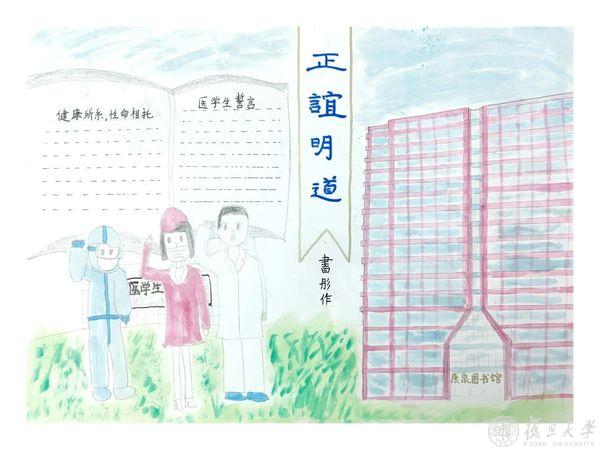 健康所系,性命相托
医学生誓言
医学生
正誼明道
書彤作
康泉图书馆
復旦大學
FUDAN UNIVERSITY